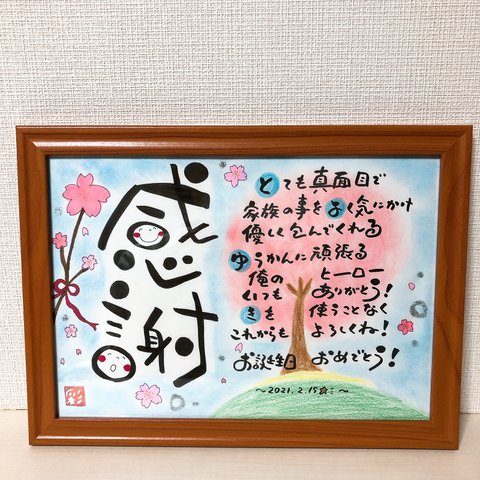 感謝
とても真面目で
家族の事をよく気にかけ
優しく包んでくれる
ゆうかんに頑張る
俺のヒーロー
いつもありがとう!
きを使うことなく
これからもよろしくね!
お誕生日おめでとう!
～2021.2.15